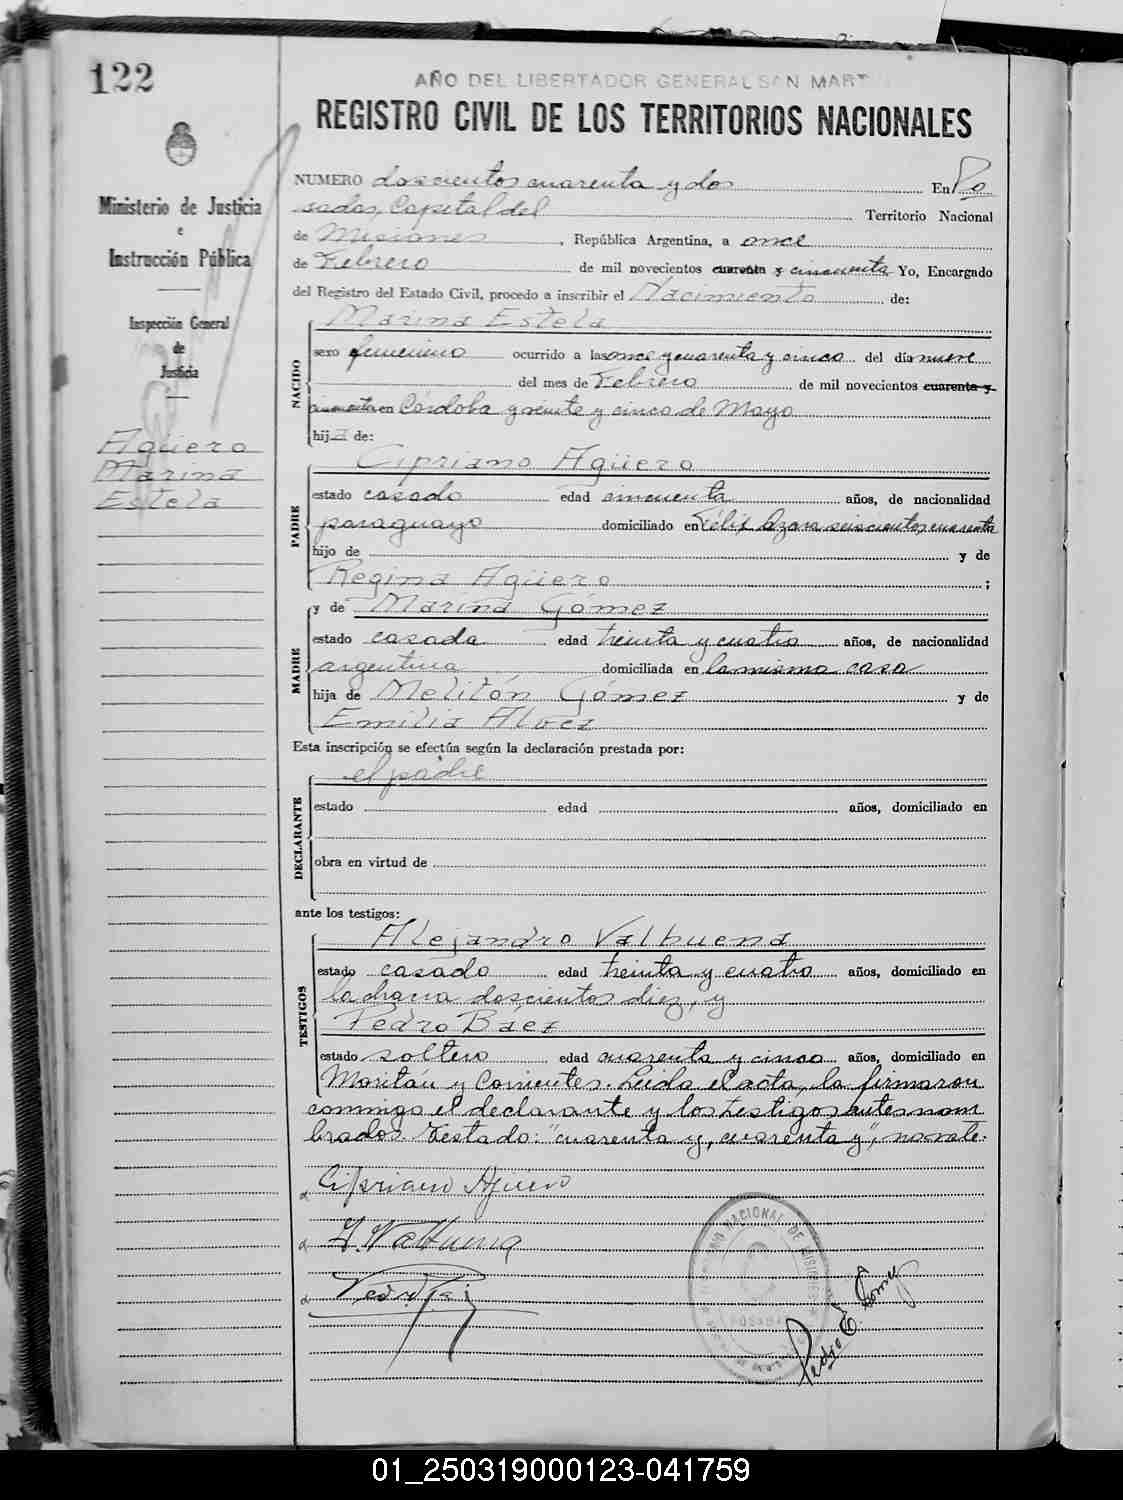 122
AÑO DEL LIBERTADOR GENERAL SAN MART
REGISTRO CIVIL DE LOS TERRITORIOS NACIONALES
Ministerio de Justicia
e
Instrucción Pública
Inspección General
de
Justicia
Agüero
Marina
Estela
NUMERO doscientos cuarenta y dos En Po
sadas, Capital del Territorio Nacional
de Misiones, República Argentina, a once
de Febrero de mil novecientos cuarenta y cincuenta Yo, Encargado
del Registro del Estado Civil, procedo a inscribir el Nacimiento de:
NACIDO
Marina Estela
sexo femenino ocurrido a las once y cuarenta y cinco del día nueve
del mes de Febrero de mil novecientos cuarenta y
cincuenta en Córdoba y veinte y cinco de Mayo
hija de:
PADRE
Cipriano Agüero
estado casado edad cincuenta años, de nacionalidad
paraguayo domiciliado en Félix Azara seiscientos cuarenta
hijo de y de
Regina Agüero ;
MADRE
y de Marina Gómez
estado casada edad treinta y cuatro años, de nacionalidad
argentina domiciliada en la misma casa
hija de Melitón Gómez y de
Emilia Alvez
Esta inscripción se efectúa según la declaración prestada por:
DECLARANTE
el padre
estado edad años, domiciliado en
obra en virtud de
ante los testigos:
TESTIGOS
Alejandro Valbuena
estado casado edad treinta y cuatro años, domiciliado en
la chacra doscientos diez, y
Pedro Báez
estado soltero edad cuarenta y cinco años, domiciliado en
Moritán y Corrientes. Leida el acta, la firmaron
conmigo el declarante y los testigos antes nom
brados. Testado: "cuarenta y, cuarenta y", no vale.
Cipriano Agüero
A. Valbuena
Pedro E. Gomez
01_250319000123-041759